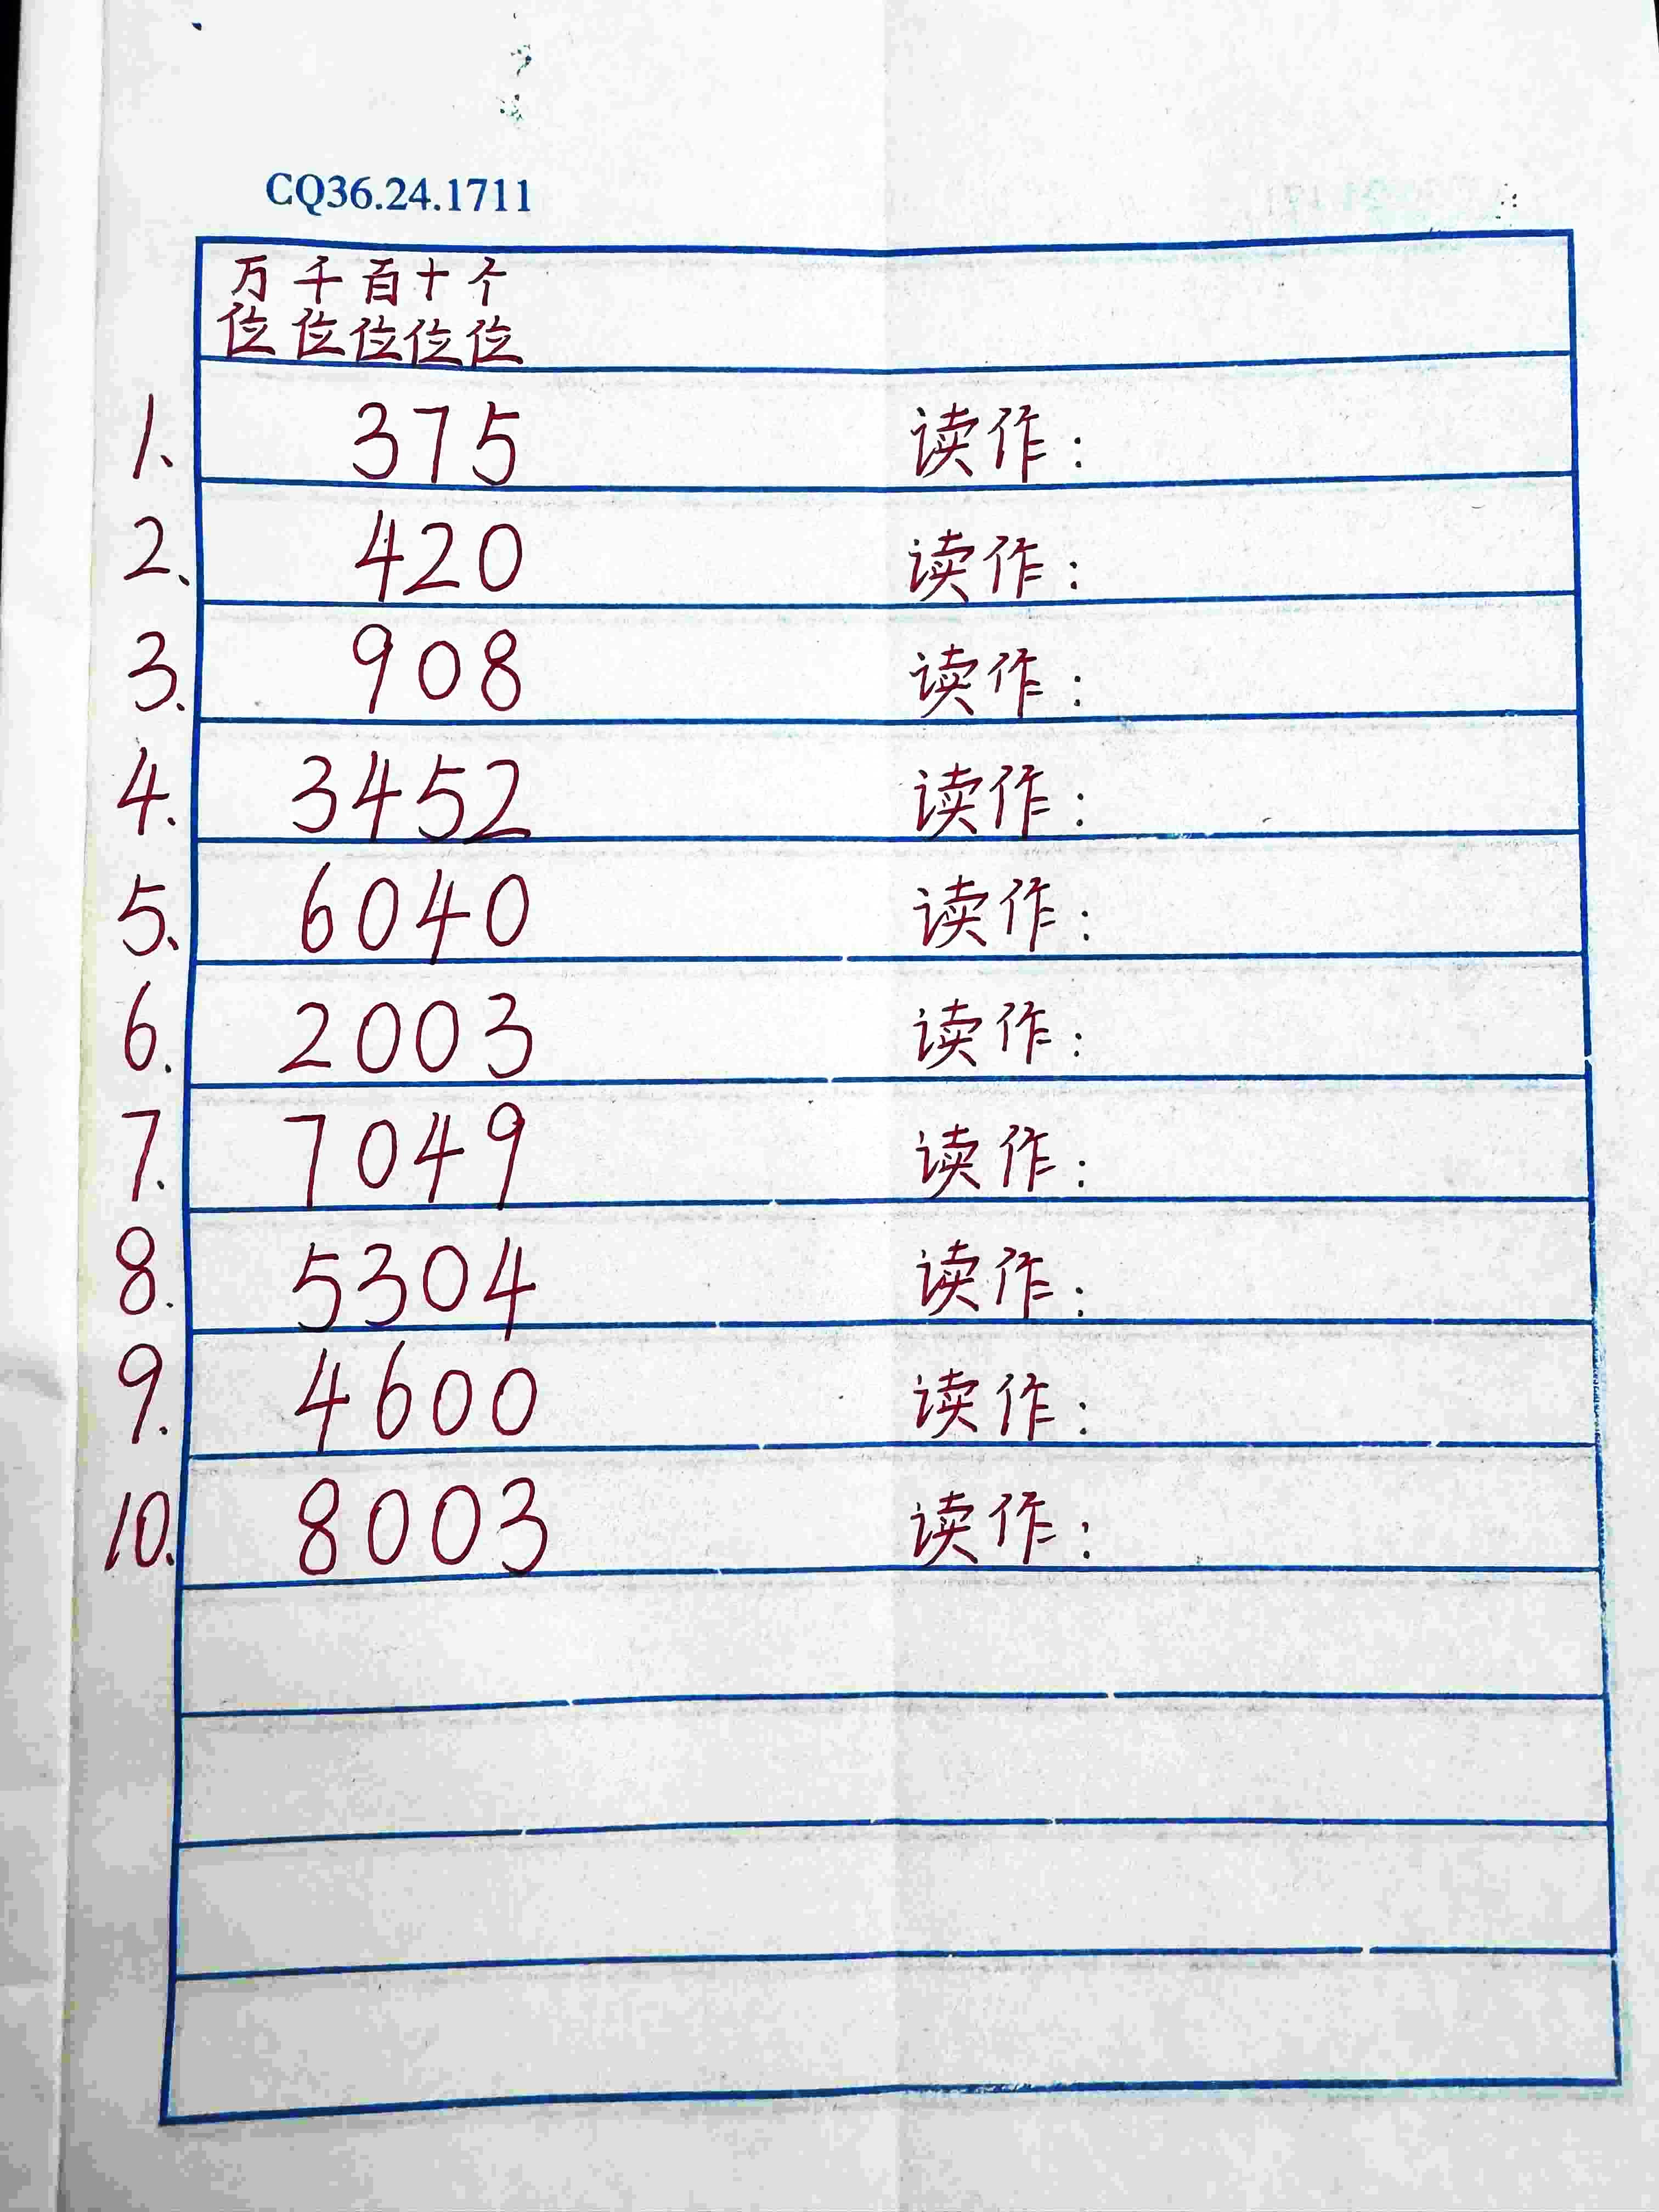 CQ36.24.1711
万 千 百 十 个
位 位 位 位 位
1、 375 读作：
2、 420 读作：
3、 908 读作：
4、 3452 读作：
5、 6040 读作：
6、 2003 读作：
7、 7049 读作：
8、 5304 读作：
9、 4600 读作：
10、 8003 读作：